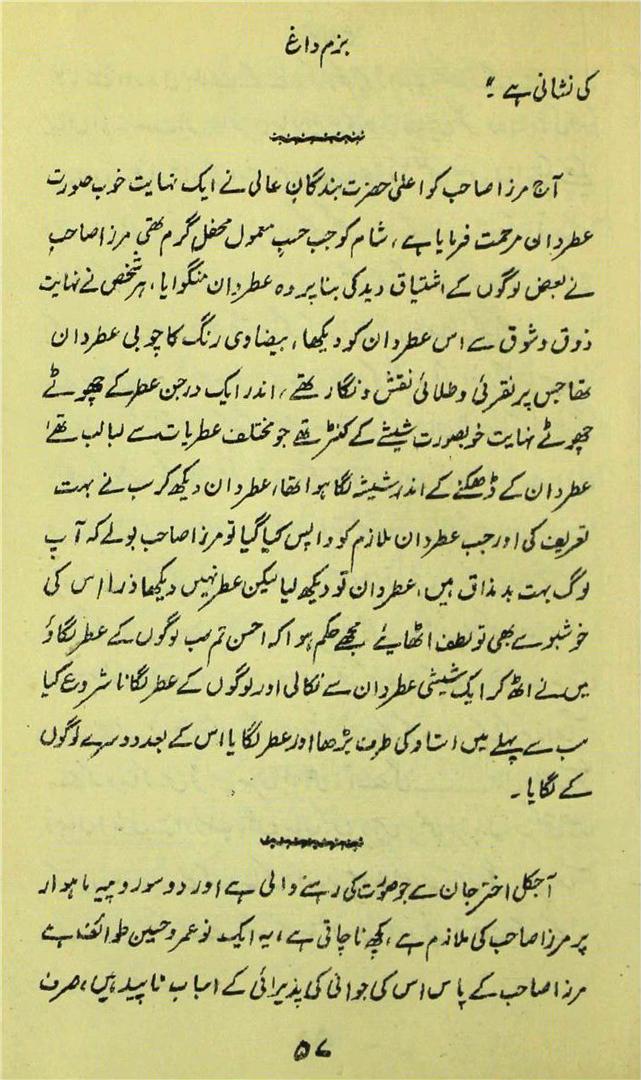 بزم داغ
کی نشانی ہے ۔"
آج مرزا صاحب کو اعلیٰ حضرت بندگانِ عالی نے ایک نہایت خوب صورت
عطردان مرحمت فرمایا ہے ، شام کو جب حسبِ معمول محفل گرم تھی مرزا صاحب
نے بعض لوگوں کے اشتیاق دید کی بنا پر وہ عطردان منگوایا ، ہر شخص نے نہایت
ذوق و شوق سے اس عطردان کو دیکھا ، بیضاوی رنگ کا چوبی عطردان
تھا جس پر نقرئی و طلائی نقش و نگار تھے ، اندر ایک درجن عطر کے چھوٹے
چھوٹے نہایت خوبصورت شیشے کے کنٹر تھے جو مختلف عطریات سے لبالب تھے
عطردان کے ڈھکنے کے اندر شیشہ لگا ہوا تھا ، عطردان دیکھ کر سب نے بہت
تعریف کی اور جب عطردان ملازم کو واپس کیا گیا تو مرزا صاحب بولے کہ آپ
لوگ بہت بد مذاق ہیں ، عطردان تو دیکھ لیا لیکن عطر نہیں دیکھا ذرا اس کی
خوشبو سے بھی تو لطف اٹھائیے مجھے حکم ہوا کہ احسن تم سب لوگوں کے عطر لگاؤ
میں نے اٹھ کر ایک شیشی عطردان سے نکالی اور لوگوں کے عطر لگانا شروع کیا
سب سے پہلے میں استاد کی طرف بڑھا اور عطر لگایا اس کے بعد دوسرے لوگوں
کے لگایا ۔
آجکل اختر جان سے جو صورت کی رہنے والی ہے اور دو سو روپیہ ماہوار
پر مرزا صاحب کی ملازم ہے ، کچھ ناچاتی ہے ، یہ ایک نو عمر و حسین طوائف ہے
مرزا صاحب کے پاس اس کی جوانی کی پذیرائی کے اسباب ناپید ہیں ، صرف
۵۷